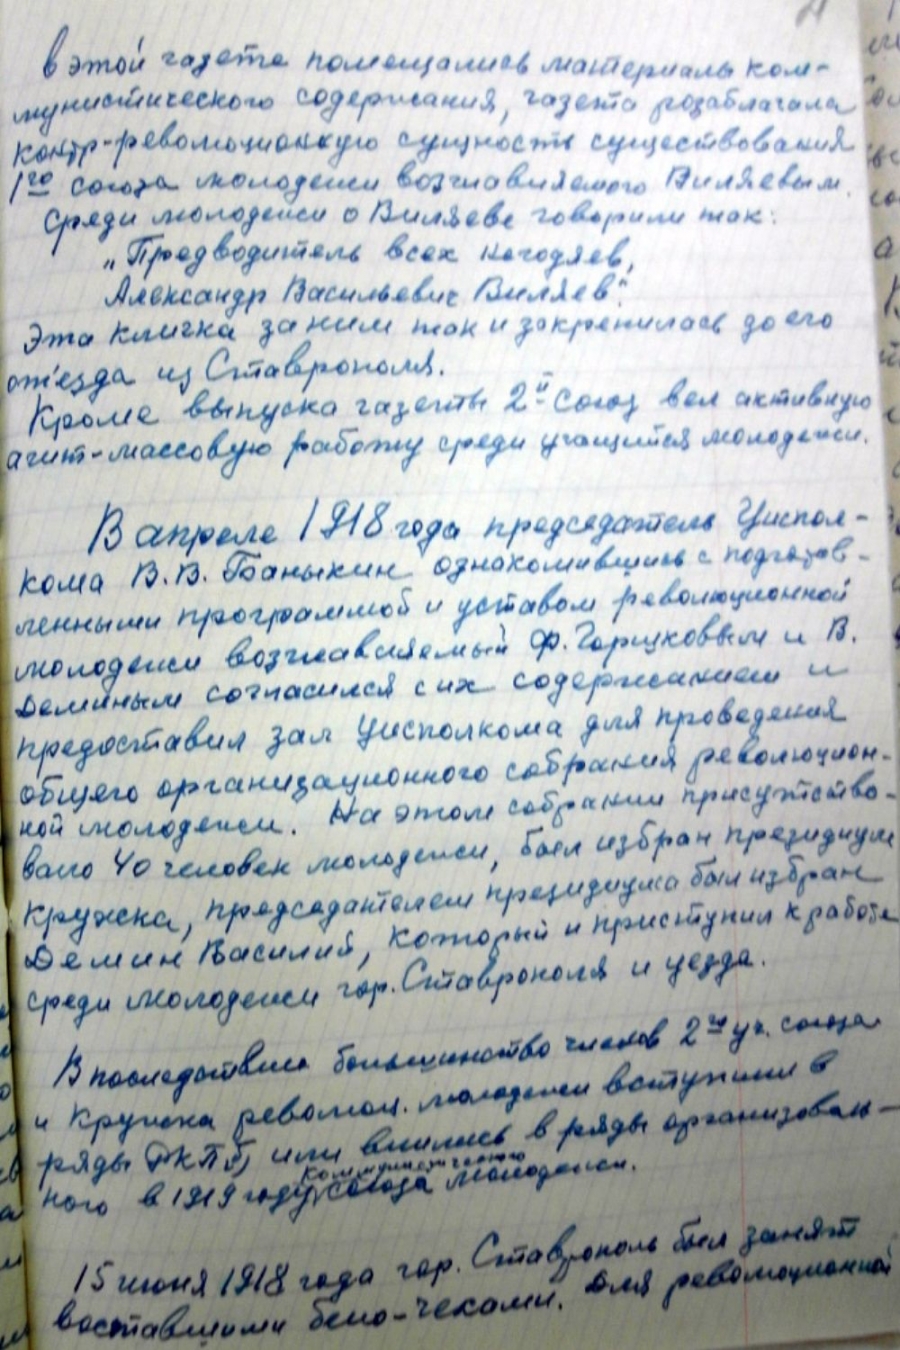 В этой газете помещались материалы ком-
мунистического содержания, газета розаблачала
контр-революционную сущность существования
1го союза молодежи возглавляемого Виляевым.
Среди молодежи о Виляеве говорили так:
„Предводитель всех негодяев,
Александр Васильевич Виляев".
Эта кличка за ним так и закрепилась до его
от'езда из Ставрополя.
Кроме выпуска газеты 2й союз вел активную
агит-массовую работу среди учащийся молодежи.
В апреле 1918 года председатель Уиспол-
кома В.В. Баныкин ознакомившись с подготов-
ленными программой и уставом революционной
молодежи возглавляемый Ф. Горшковым и В.
Деминым согласился с их содержанием и
предоставил зал Уисполкома для проведения
общего организационного собрания революцион-
ной молодежи. На этом собрании присутство-
вало 40 человек молодежи, был избран президиум
кружка, председателем президиума был избран
Демин Василий, который и приступил к работе
среди молодежи гор. Ставрополя и уезда.
В последствии большинство членов 2го уч. союза
и кружка революц. молодежи вступили в
ряды РКПб, или влились в ряды организован-
ного в 1919 году Коммунистического союза молодежи.
15 июня 1918 года гор. Ставрополь был занят
воставшими бело-чехами. Для революционной
4